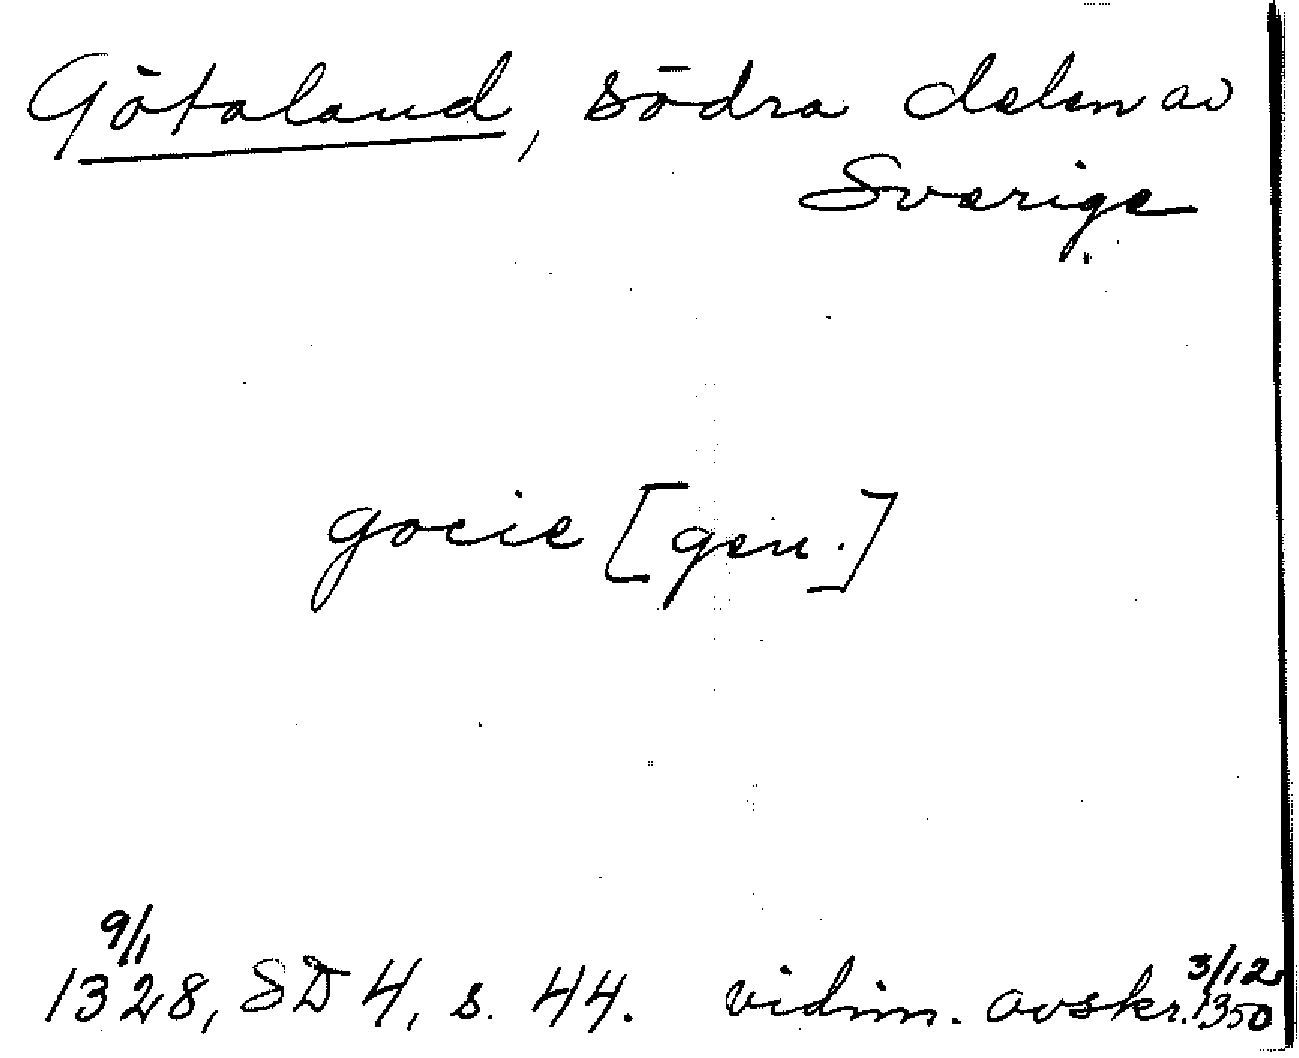 Götaland, södra delen av
Sverige
gocie [gen.]
9/1
1328, SD 4, s. 44. vidim. avskr. 3/12 1350